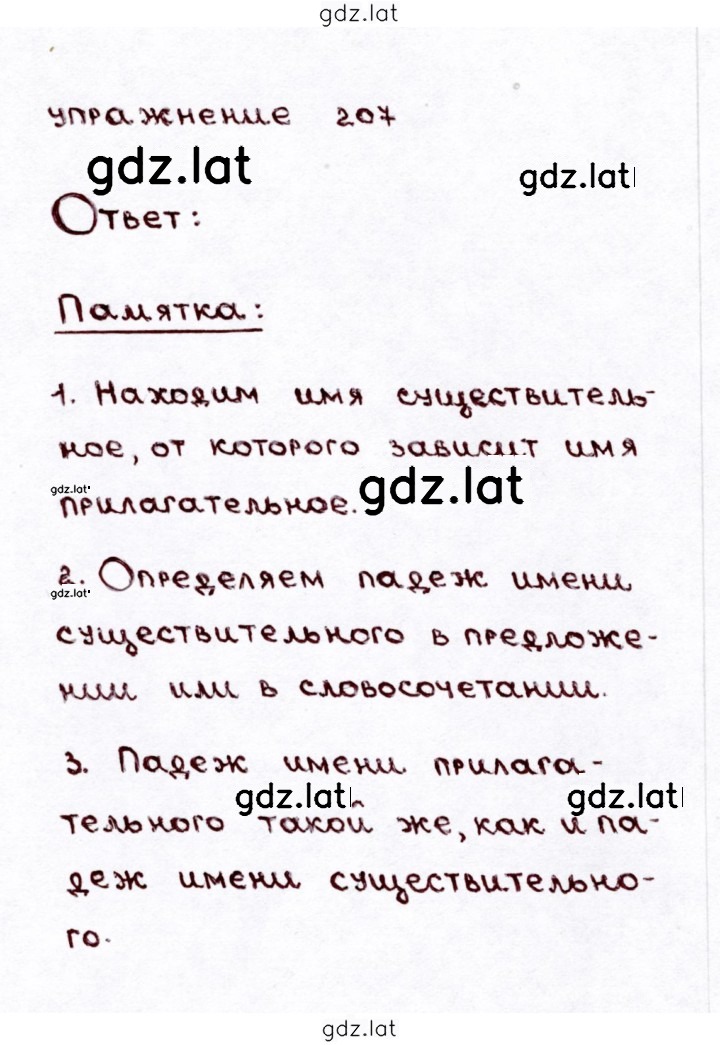 gdz.lat
упражнение 207
gdz.lat gdz.lat
Ответ:
Памятка:
1. Находим имя существитель-
ное, от которого зависит имя
gdz.lat gdz.lat
прилагательное.
2. Определяем падеж имени
gdz.lat
существительного в предложе-
нии или в словосочетании.
3. Падеж имени прилага-
gdz.lat gdz.lat
тельного такой же, как и па-
деж имени существительно-
го.
gdz.lat